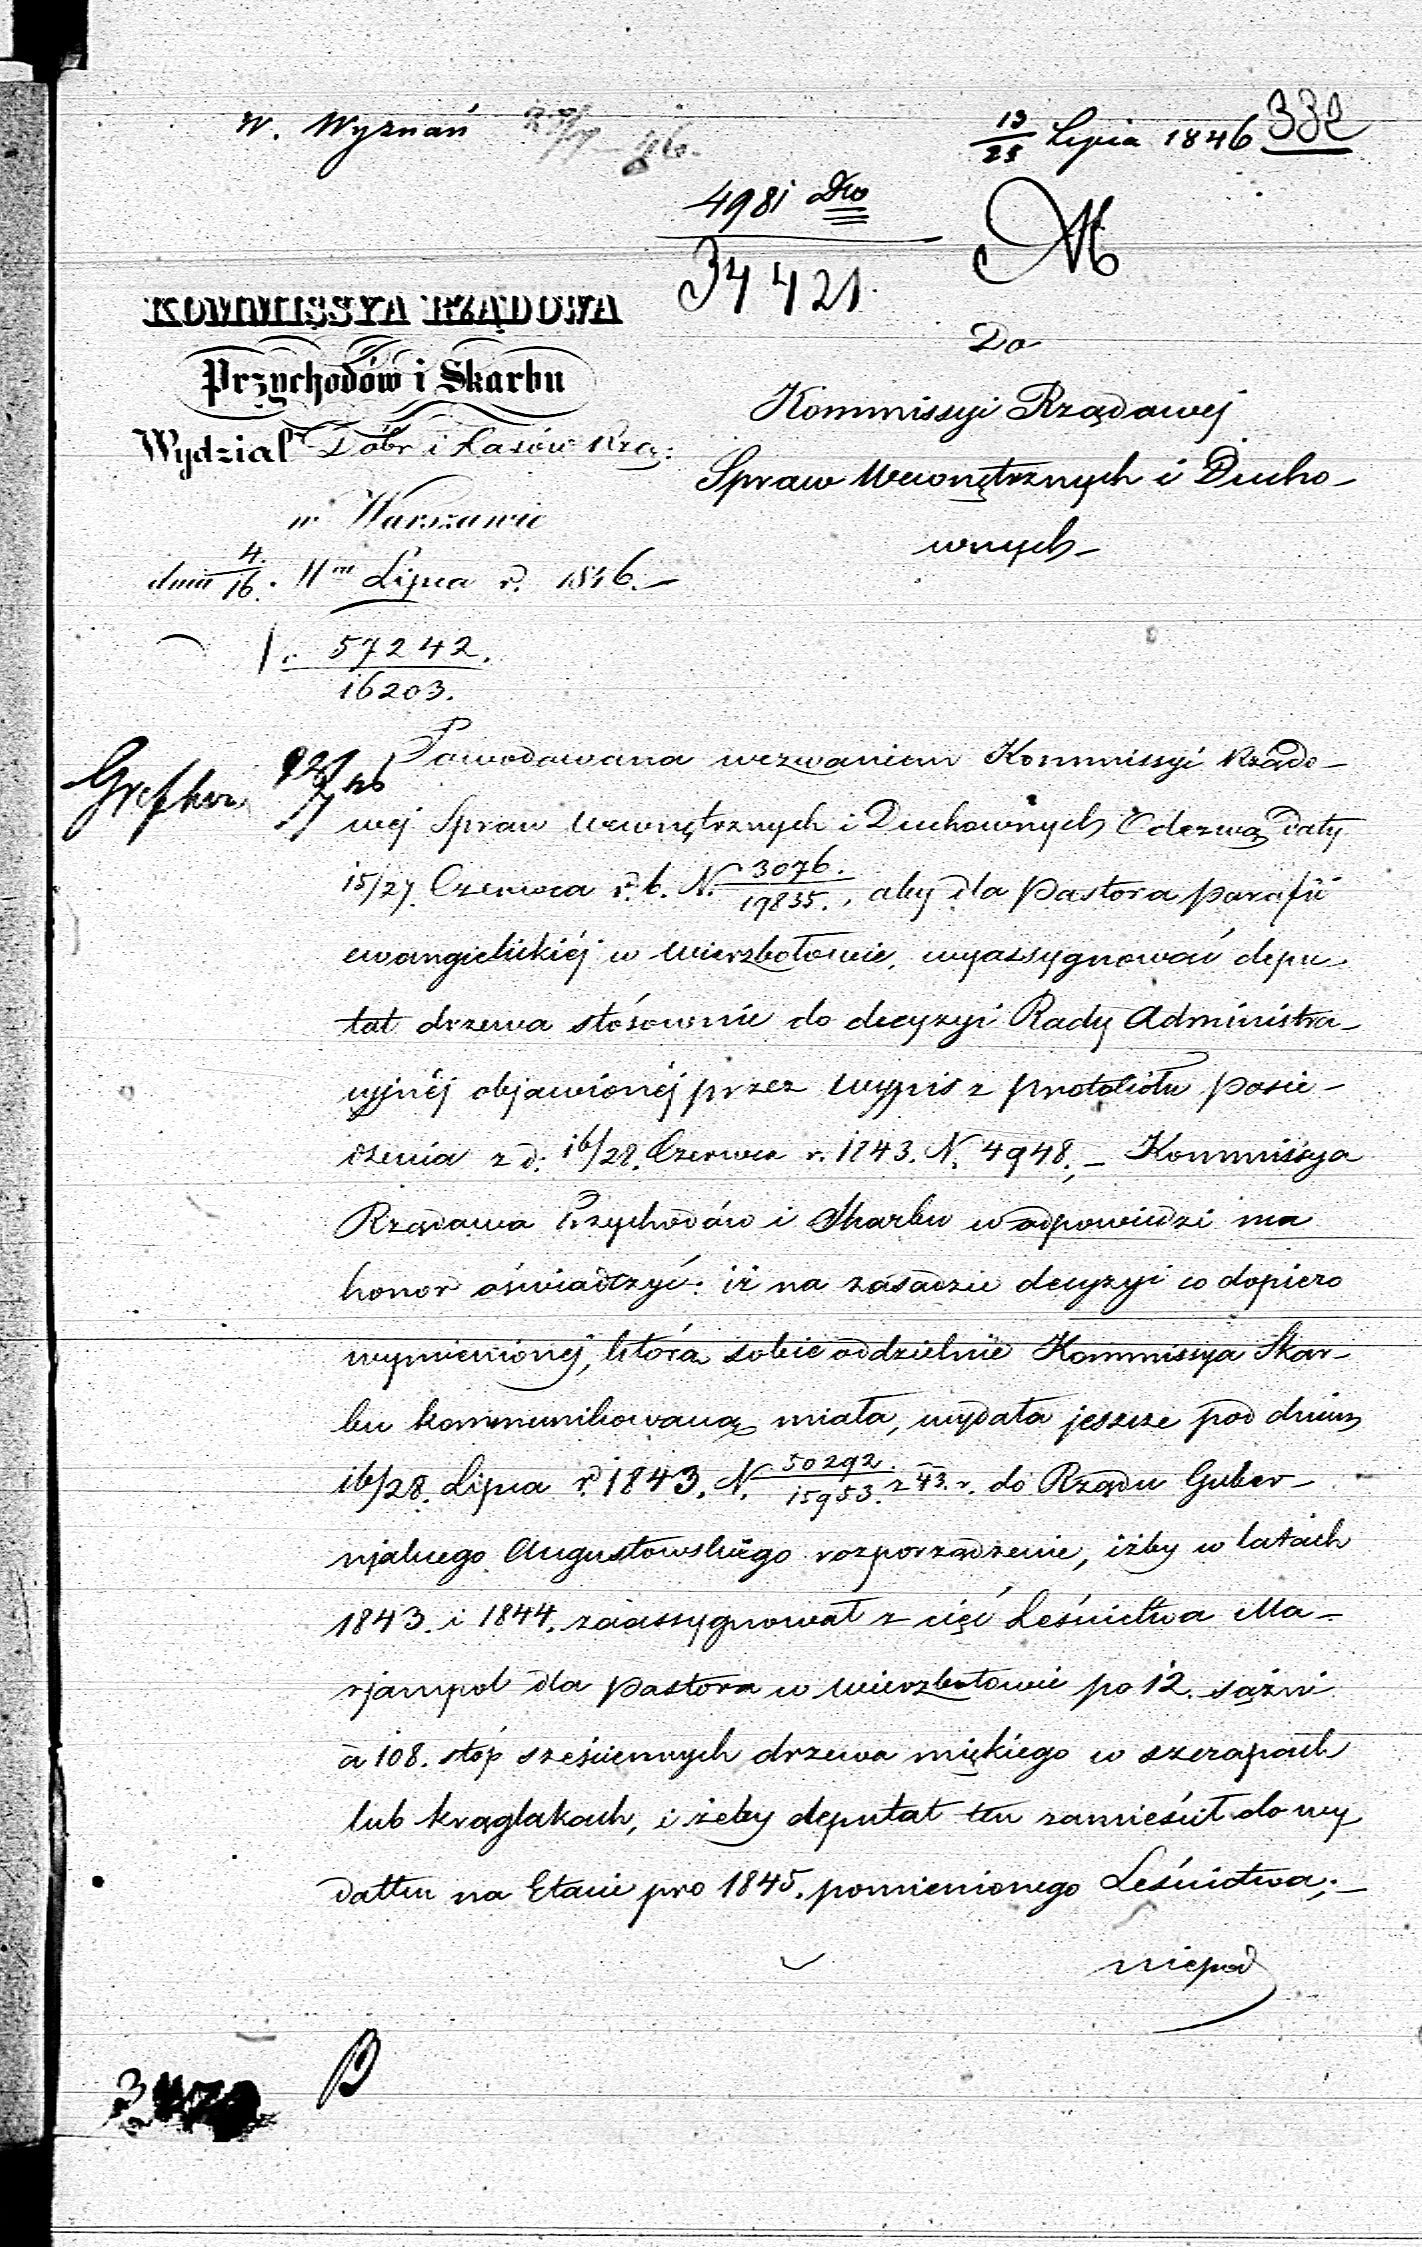 W. Wyznań
13/25 Lipca 1846 332
4981 Dwo
34421.
KOMMISSYA RZĄDOWA
Przychodów i Skarbu
Wydział Dóbr i Lasów Rzą:
w Warszawie
dnia 4/16. Lipca r. 1846.—
57242.
16203.
Do
Kommissyi Rządowej
Spraw Wewnętrznych i Ducho-
wnych—
Powodowana wezwaniem Kommissyi Rządo-
wej Spraw Wewnętrznych i Duchownych Odezwą daty
15/27. Czerwca r. b. N. 3076./19835., aby dla Pastora parafii
ewangielickiéj w Wierzbołowie, wyassygnować depu-
tat drzewa stósownie do decyzyi Rady Administra-
cyjnéj objawionéj przez wypis z protokółu posie-
dzenia z d. 16/28. Czerwca r. 1843. N. 4948,— Kommissya
Rządowa Przychodów i Skarbu w odpowiedzi ma
honor oświadczyć: iż na zasadzie decyzyi co dopiero
wymienionej, którą sobie oddzielnie Kommissya Skar-
bu kommunikowaną miała, wydała jeszcze pod dniem
16/28. Lipca r. 1843. N. 50292./15953. z 43. r. do Rządu Guber-
njalnego Augustowskiego rozporządzenie, iżby w latach
1843. i 1844. zaassygnował z cięć Leśnictwa Ma-
rjampol dla Pastora w Wierzbołowie po 12. sążni
a 108. stóp sześciennych drzewa miękiego w szczapach
lub krąglakach, i żeby deputat ten zamieścił do wy
datku na Etacie pro 1845. pomienionego Leśnictwa;—
niepod
B